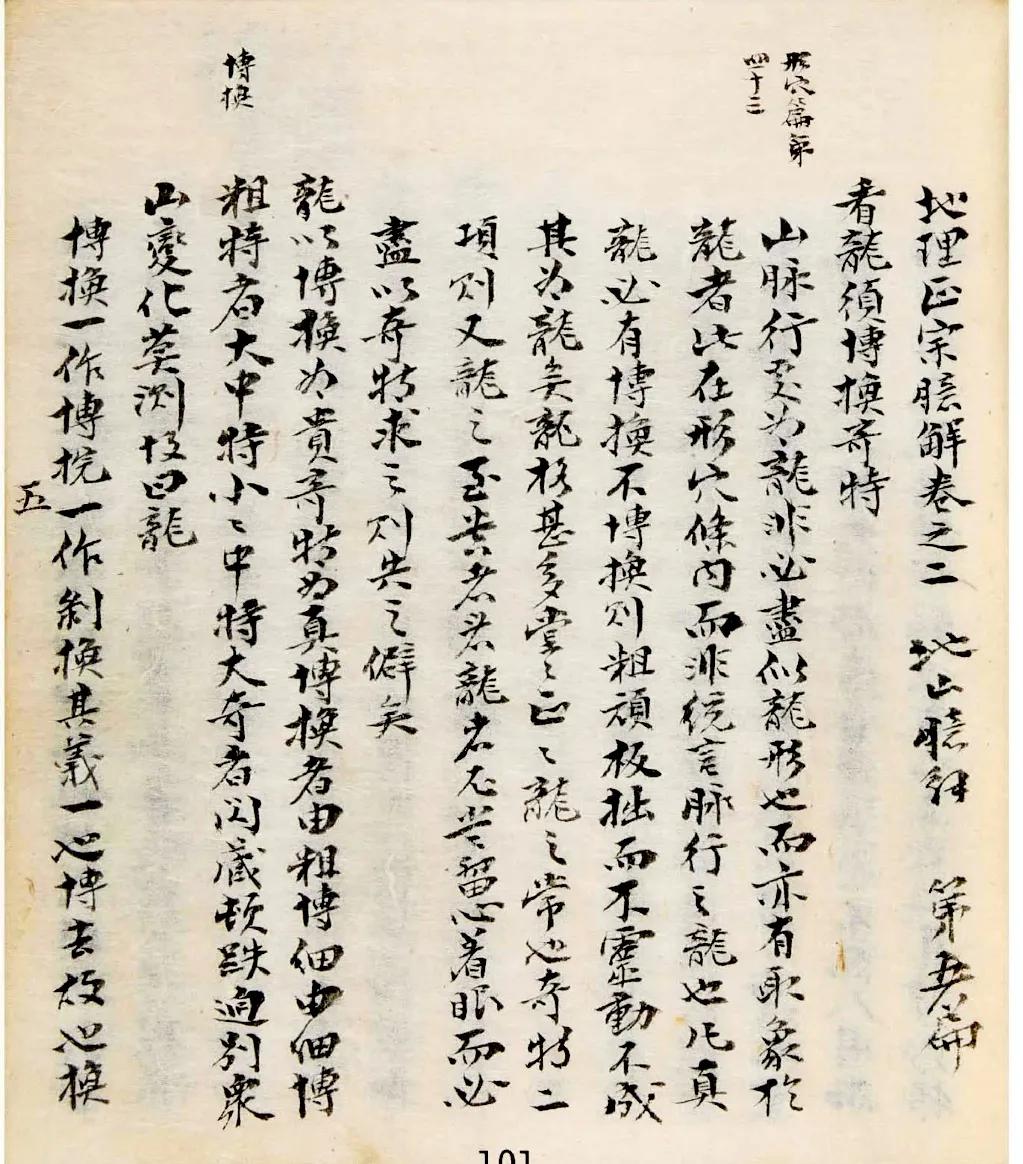 地理正宗臆解卷之二 地山臆解 第五篇
看龍須博換奇特
形穴篇第
四十二
山脉行變为龍非必盡似龍形也而亦有取象於
龍者此在形穴條内而非統言脉行之龍也凡真
龍必有博換不博換則粗頑板拙而不靈動不成
其为龍矣龍格甚多堂〻正〻龍之常也奇特二
項則又龍之至貴者若龍者留心着眼而必
盡以奇特求之則失之僻矣
龍以博換为貴奇特为真博換者由粗博細由細博
粗特者大中特小〻中特大奇者闪藏頓跌迥别衆
山變化莫测故曰龍
博換
博換一作博挩一作剝換其義一也博去故也換
五
101